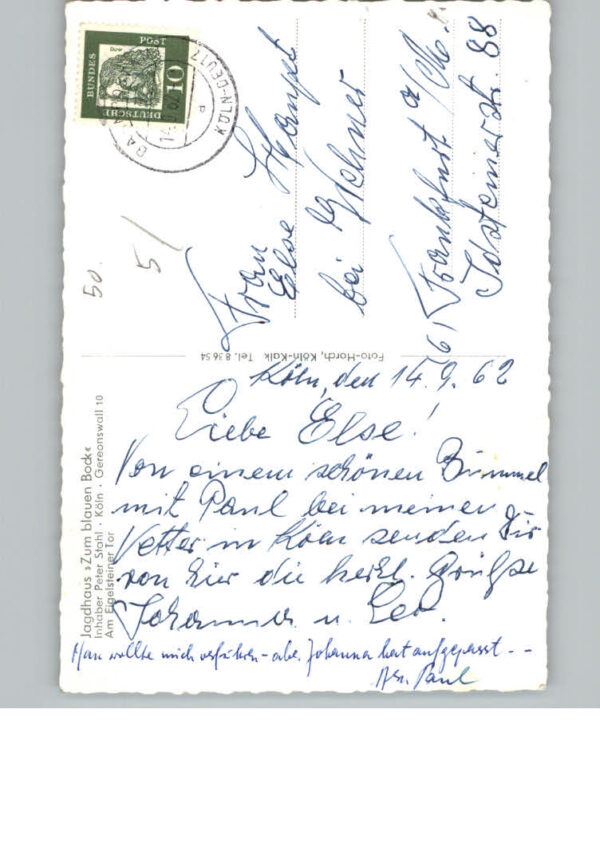 Jagdhaus »Zum blauen Bock«
Inhaber Peter Stahl · Köln · Gereonswall 10
Am Eigelsteiner Tor
Köln, den 14.9.62
Liebe Else!
Von einem schönen Bummel
mit Paul bei meinem
Vetter in Köln senden Dir
von hier die herzl. Grüße
Johanna u. Leo.
Man wollte mich verführen - aber Johanna hat aufgepasst - -
Paul
Foto-Horch, Köln-Kalk Tel. 8 36 54
Frau
Else
bei
61 Frankfurt a/M.
Idsteinerstr. 88
DEUTSCHE
BUNDES
POST
10
KÖLN-DEUTZ
50.
5/